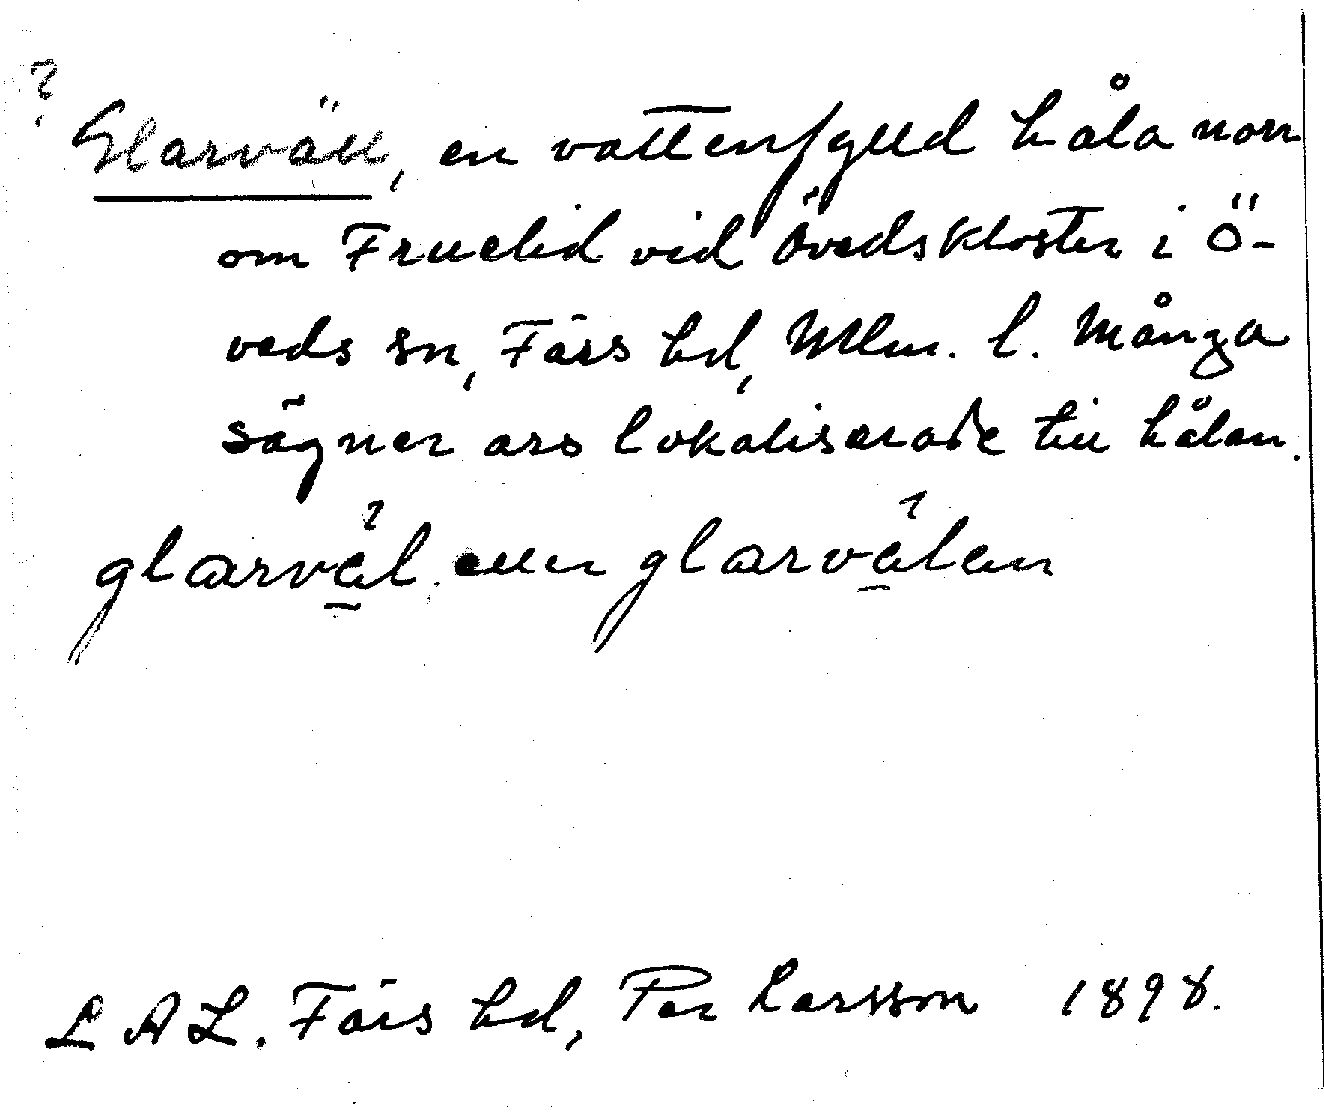 ?
Glarväll, en vattenfylld håla norr
om Fruelid vid Övedskloster i Ö-
veds sn, Färs hd, Mlm. l. Många
sägner äro lokaliserade till hålan.
glarväl eller glarvälen
L A L. Färs hd, Per Larsson 1898.